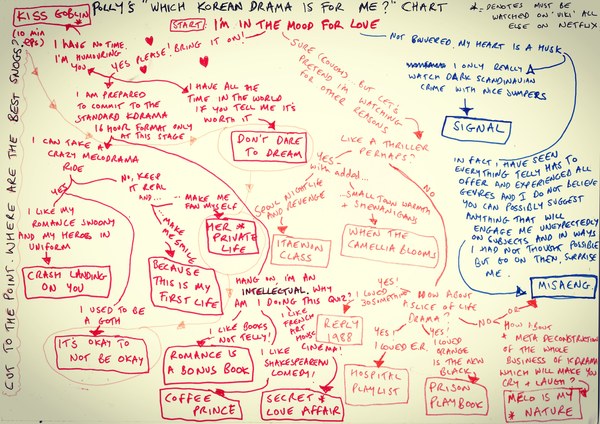 KISS GOBLIN*
(10 min eps)
POLLY'S "WHICH KOREAN DRAMA IS FOR ME?" CHART
* = DENOTES MUST BE
WATCHED ON 'VIKI' ALL
ELSE ON NETFLIX
START: I'M IN THE MOOD FOR LOVE
I HAVE NO TIME.
I'M HUMOURING
YOU
YES PLEASE! BRING IT ON!
SURE (COUGH) BUT LET'S
PRETEND I'M WATCHING
FOR OTHER
REASONS
NOT BOVVERED. MY HEART IS A HUSK
I ONLY REALLY
WATCH DARK SCANDINAVIAN
CRIME WITH NICE JUMPERS
SIGNAL
I AM PREPARED
TO COMMIT TO THE
STANDARD KDRAMA
16 HOUR FORMAT ONLY
AT THIS STAGE
I HAVE ALL THE
TIME IN THE WORLD
IF YOU TELL ME IT'S
WORTH IT
DON'T DARE
TO DREAM
LIKE A THRILLER
PERHAPS?
YES
with added...
NO
SPOON, NIGHTLIFE
AND REVENGE
ITAEWON
CLASS
...SMALL TOWN WARMTH
+ SHENANIGANS
WHEN THE
CAMELLIA BLOOMS
IN FACT I HAVE SEEN
EVERYTHING TELLY HAS TO
OFFER AND EXPERIENCED ALL
GENRES AND I DO NOT BELIEVE
YOU CAN POSSIBLY SUGGEST
ANYTHING THAT WILL
ENGAGE ME UNEXPECTEDLY
ON SUBJECTS AND IN WAYS
I HAD NOT THOUGHT POSSIBLE
BUT GO ON THEN, SURPRISE
ME.
MISAENG.
I CAN TAKE A
CRAZY MELODRAMA
RIDE
YES
NO, KEEP
IT REAL
AND...
... MAKE ME
FAN MYSELF
HER *
PRIVATE
LIFE
... MAKE
ME SMILE
BECAUSE
THIS IS MY
FIRST LIFE
I LIKE MY
ROMANCE SWOONY
AND MY HEROES IN
UNIFORM
CRASH LANDING
ON YOU
I USED TO BE
A GOTH
IT'S OKAY TO
NOT BE OKAY
HANG ON I'M AN
INTELLECTUAL. WHY
AM I DOING THIS QUIZ?
I LIKE BOOKS
NOT TELLY!
ROMANCE IS
A BONUS BOOK
I LIKE
FRENCH
ART
HOUSE
CINEMA!
SECRET *
LOVE AFFAIR
I LIKE
SHAKESPEAREAN
COMEDY!
COFFEE
PRINCE
HOW ABOUT
A SLICE OF LIFE
DRAMA?
YES!
I LOVED
30SOMETHING
REPLY
1988
YES!
I LOVED E.R.
HOSPITAL
PLAYLIST
YES!
I LOVED
ORANGE
IS THE NEW
BLACK
PRISON
PLAYBOOK
NO
OR
HOW ABOUT
A META DECONSTRUCTION
OF THE WHOLE
BUSINESS OF KDRAMA
WHICH WILL MAKE YOU
CRY + LAUGH?
MELO IS MY
* NATURE
CUT TO THE POINT. WHERE ARE THE BEST SNOGS?